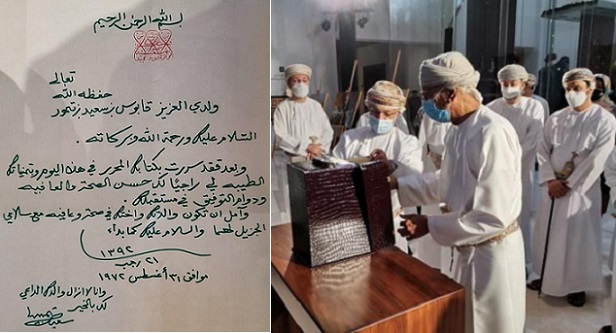 بسم الله الرحمن الرحيم
تعالى
حفظه الله
ولدي العزيز قابوس بن سعيد بن تيمور
السلام عليك ورحمة الله وبركاته .
وبعد فقد سررت بكتابك المحرر في هذا اليوم وتمنياتك
الطيبه لي راجيا لك حسن الصحة والعافيه
ودوام التوفيق في مستقبلك .
وآمل ان تكون والدتك واختك في صحة وعافيه مع سلامي
الجزيل لهما والسلام عليك كما بدأ .
١٣٩٢
٢١ رجب
موافق ٣١ أغسطس ١٩٧٢
وانا لا ازال والدك الداعي
لك بالخير
سعيد بن تيمور